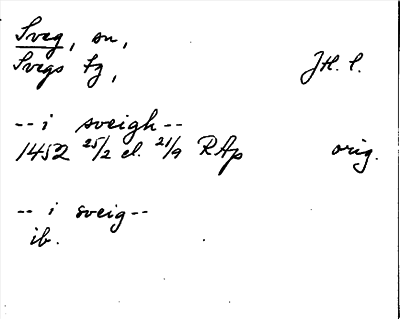 Sveg, sn,
Svegs tg, JH. l.
-- i sveigh --
1452 25/2 el. 21/9 RAp orig.
-- i sveig --
ib.